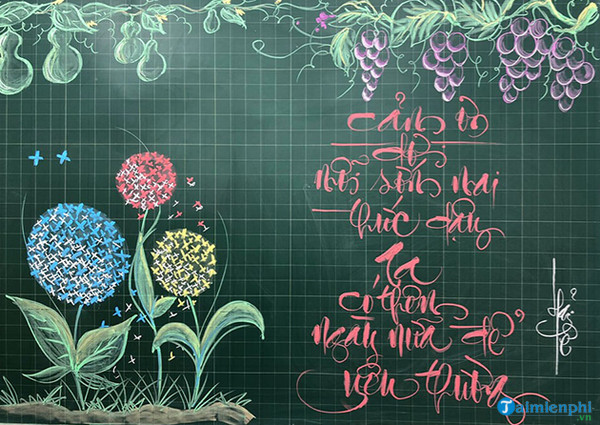 Cảm ơn
đời
mỗi sớm mai
thức dậy
Ta
có thêm
ngày nữa để
yêu thương
Taimienphi
.vn